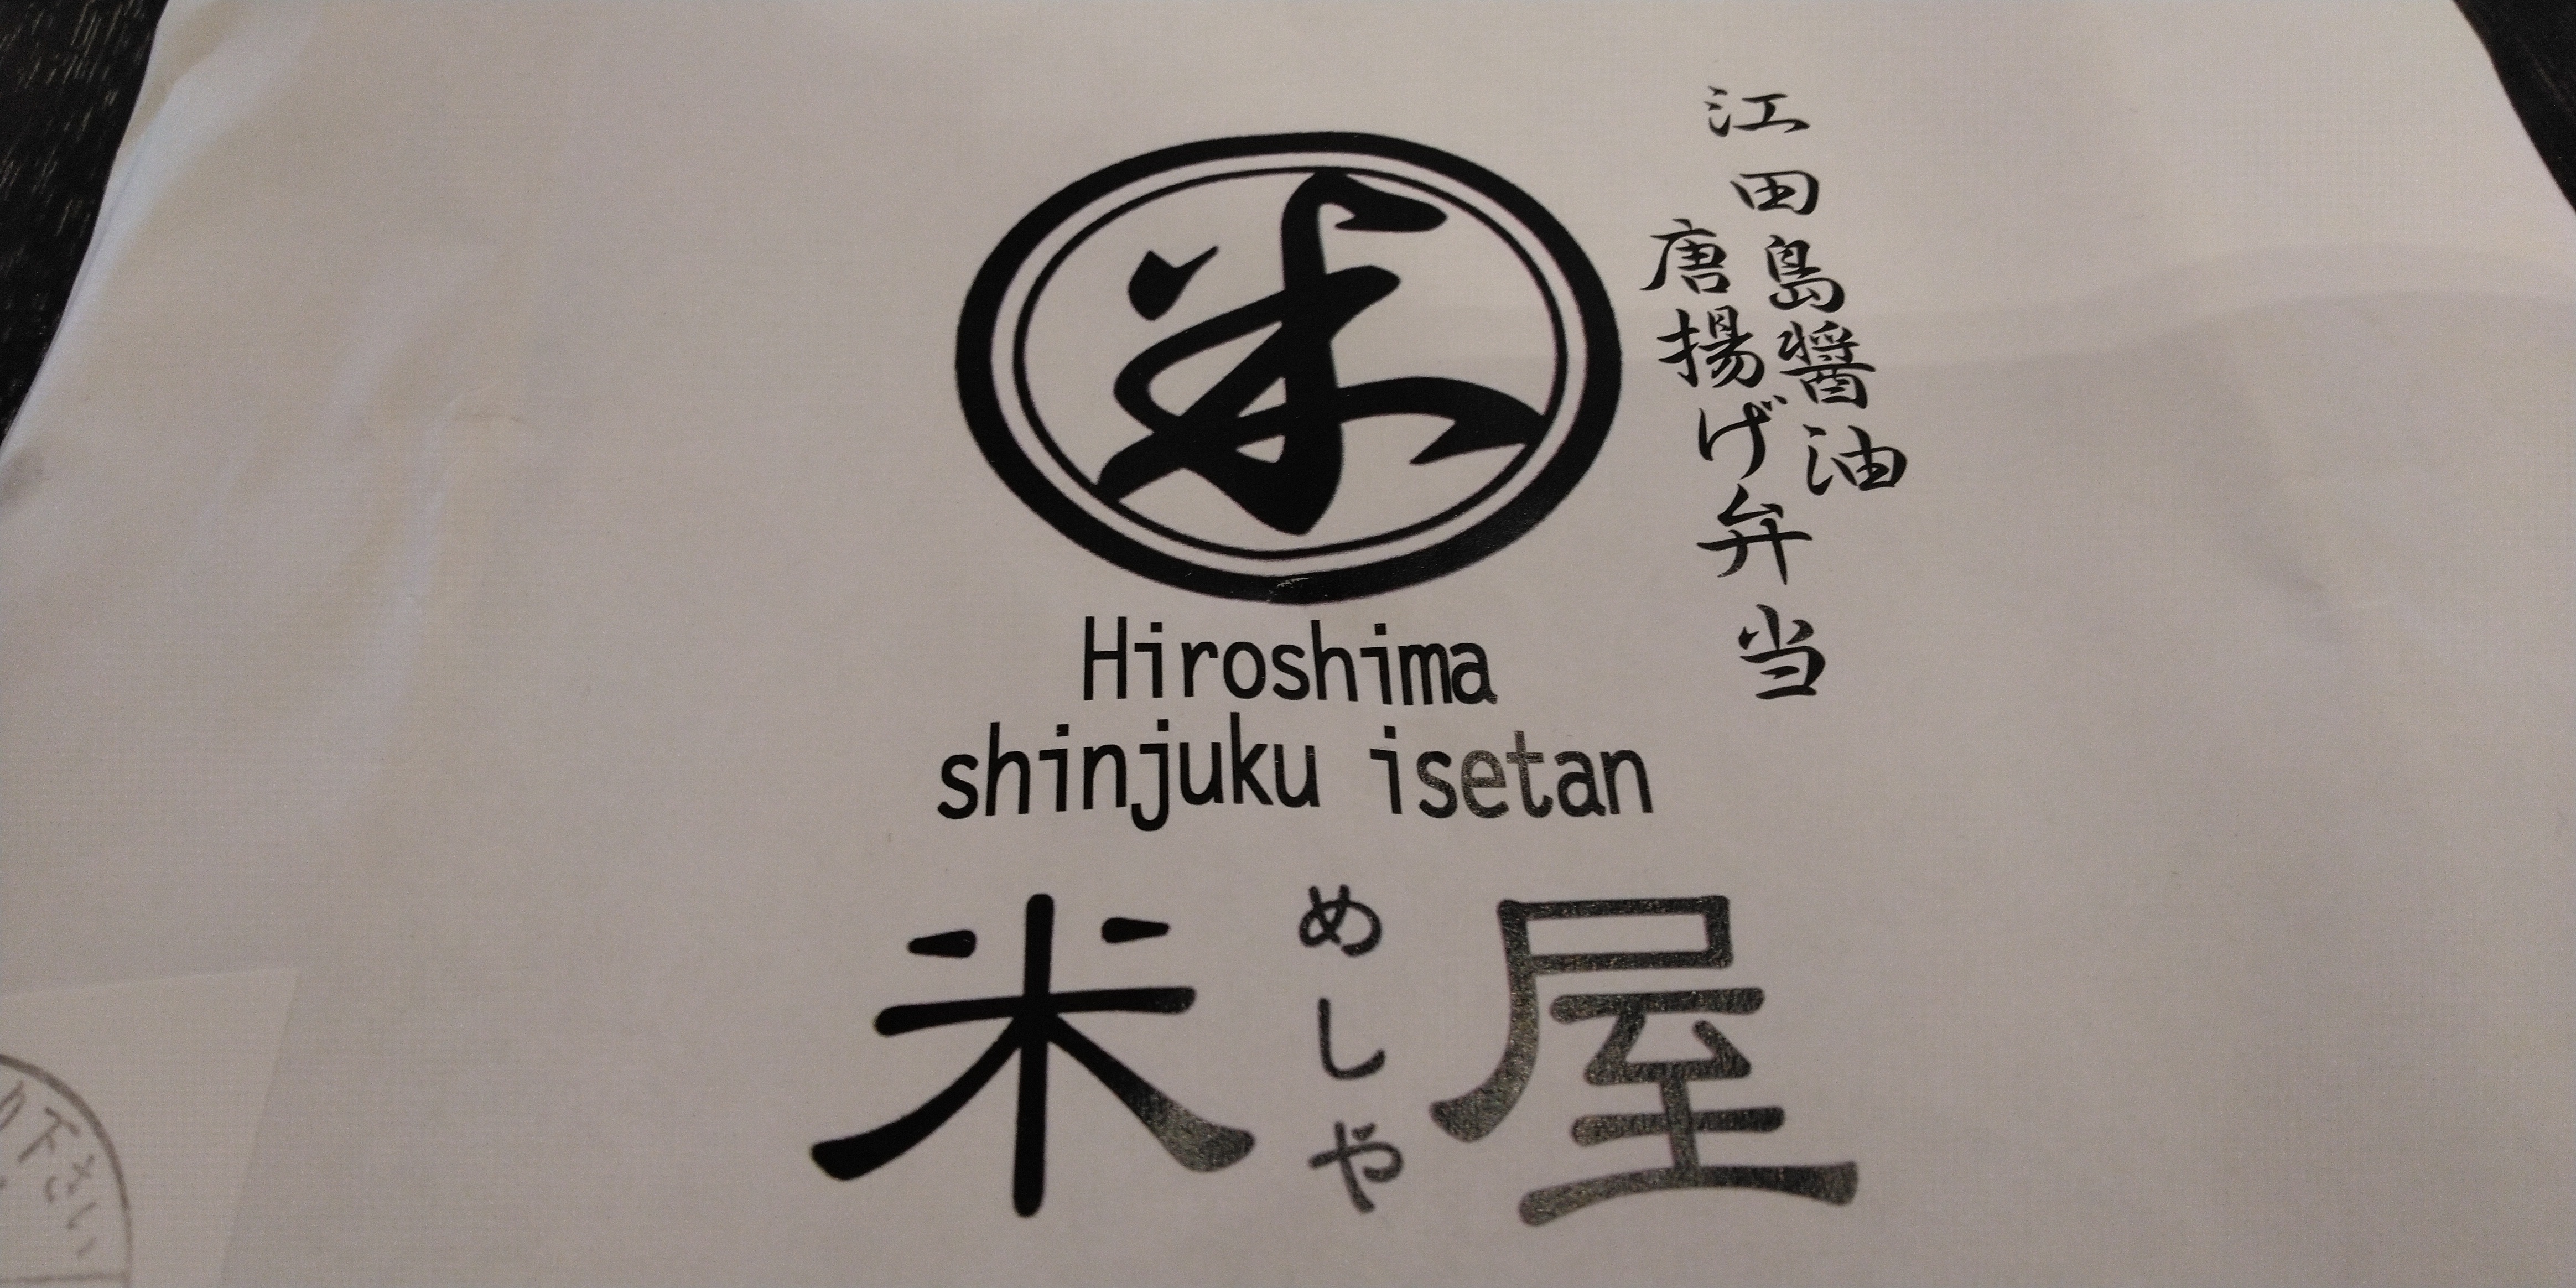 江田島醤油
唐揚げ弁当
米
Hiroshima
shinjuku isetan
米屋
めしや
下さい